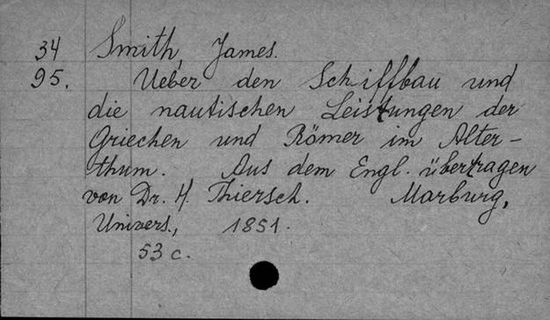 34 Smith, James.
95. Ueber den Schiffbau und
die nautischen Leistungen der
Griechen und Römer im Alter-
thum. Aus dem Engl. übertragen
von Dr. H. Thiersch. Marburg,
Univers., 1851.
53 c.